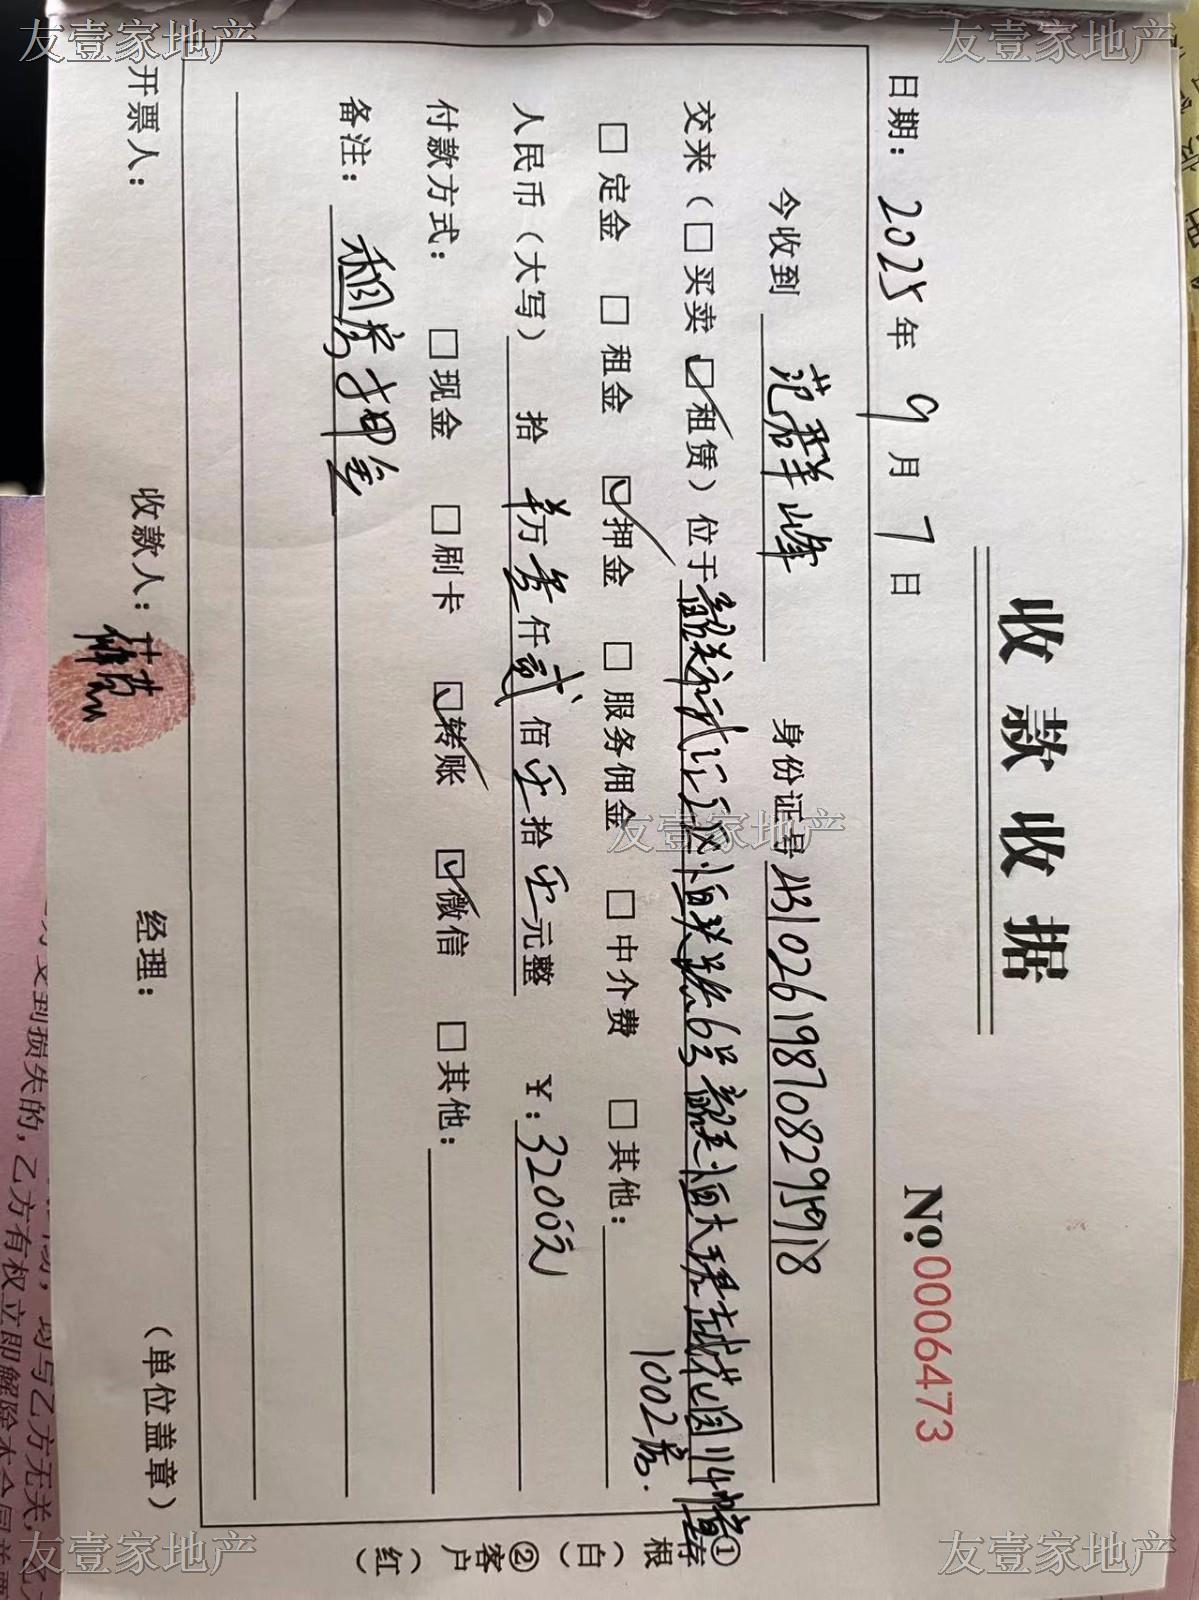 收款收据
No.0006473
日期：2025年9月7日
今收到 范群峰 身份证号 431026198708295918
交来（□买卖 ☑租赁）位于韶关市武江区恒 路6号韶关恒大珺越花园114幢
1002房.
□定金 □租金 ☑押金 □服务佣金 □中介费 □其他：
人民币（大写） 拾 万叁仟贰佰零拾零元整 ¥：3200元
付款方式： □现金 □刷卡 ☑转账 ☑微信 □其他：
备注： 租房押金
开票人： 收款人： 经理： （单位盖章）
①存根（白）②客户（红）
友壹家地产
友壹家地产
友壹家地产
友壹家地产
友壹家地产
受到损失的，乙方有权立即解除本合同并要
均与乙方无关，乙